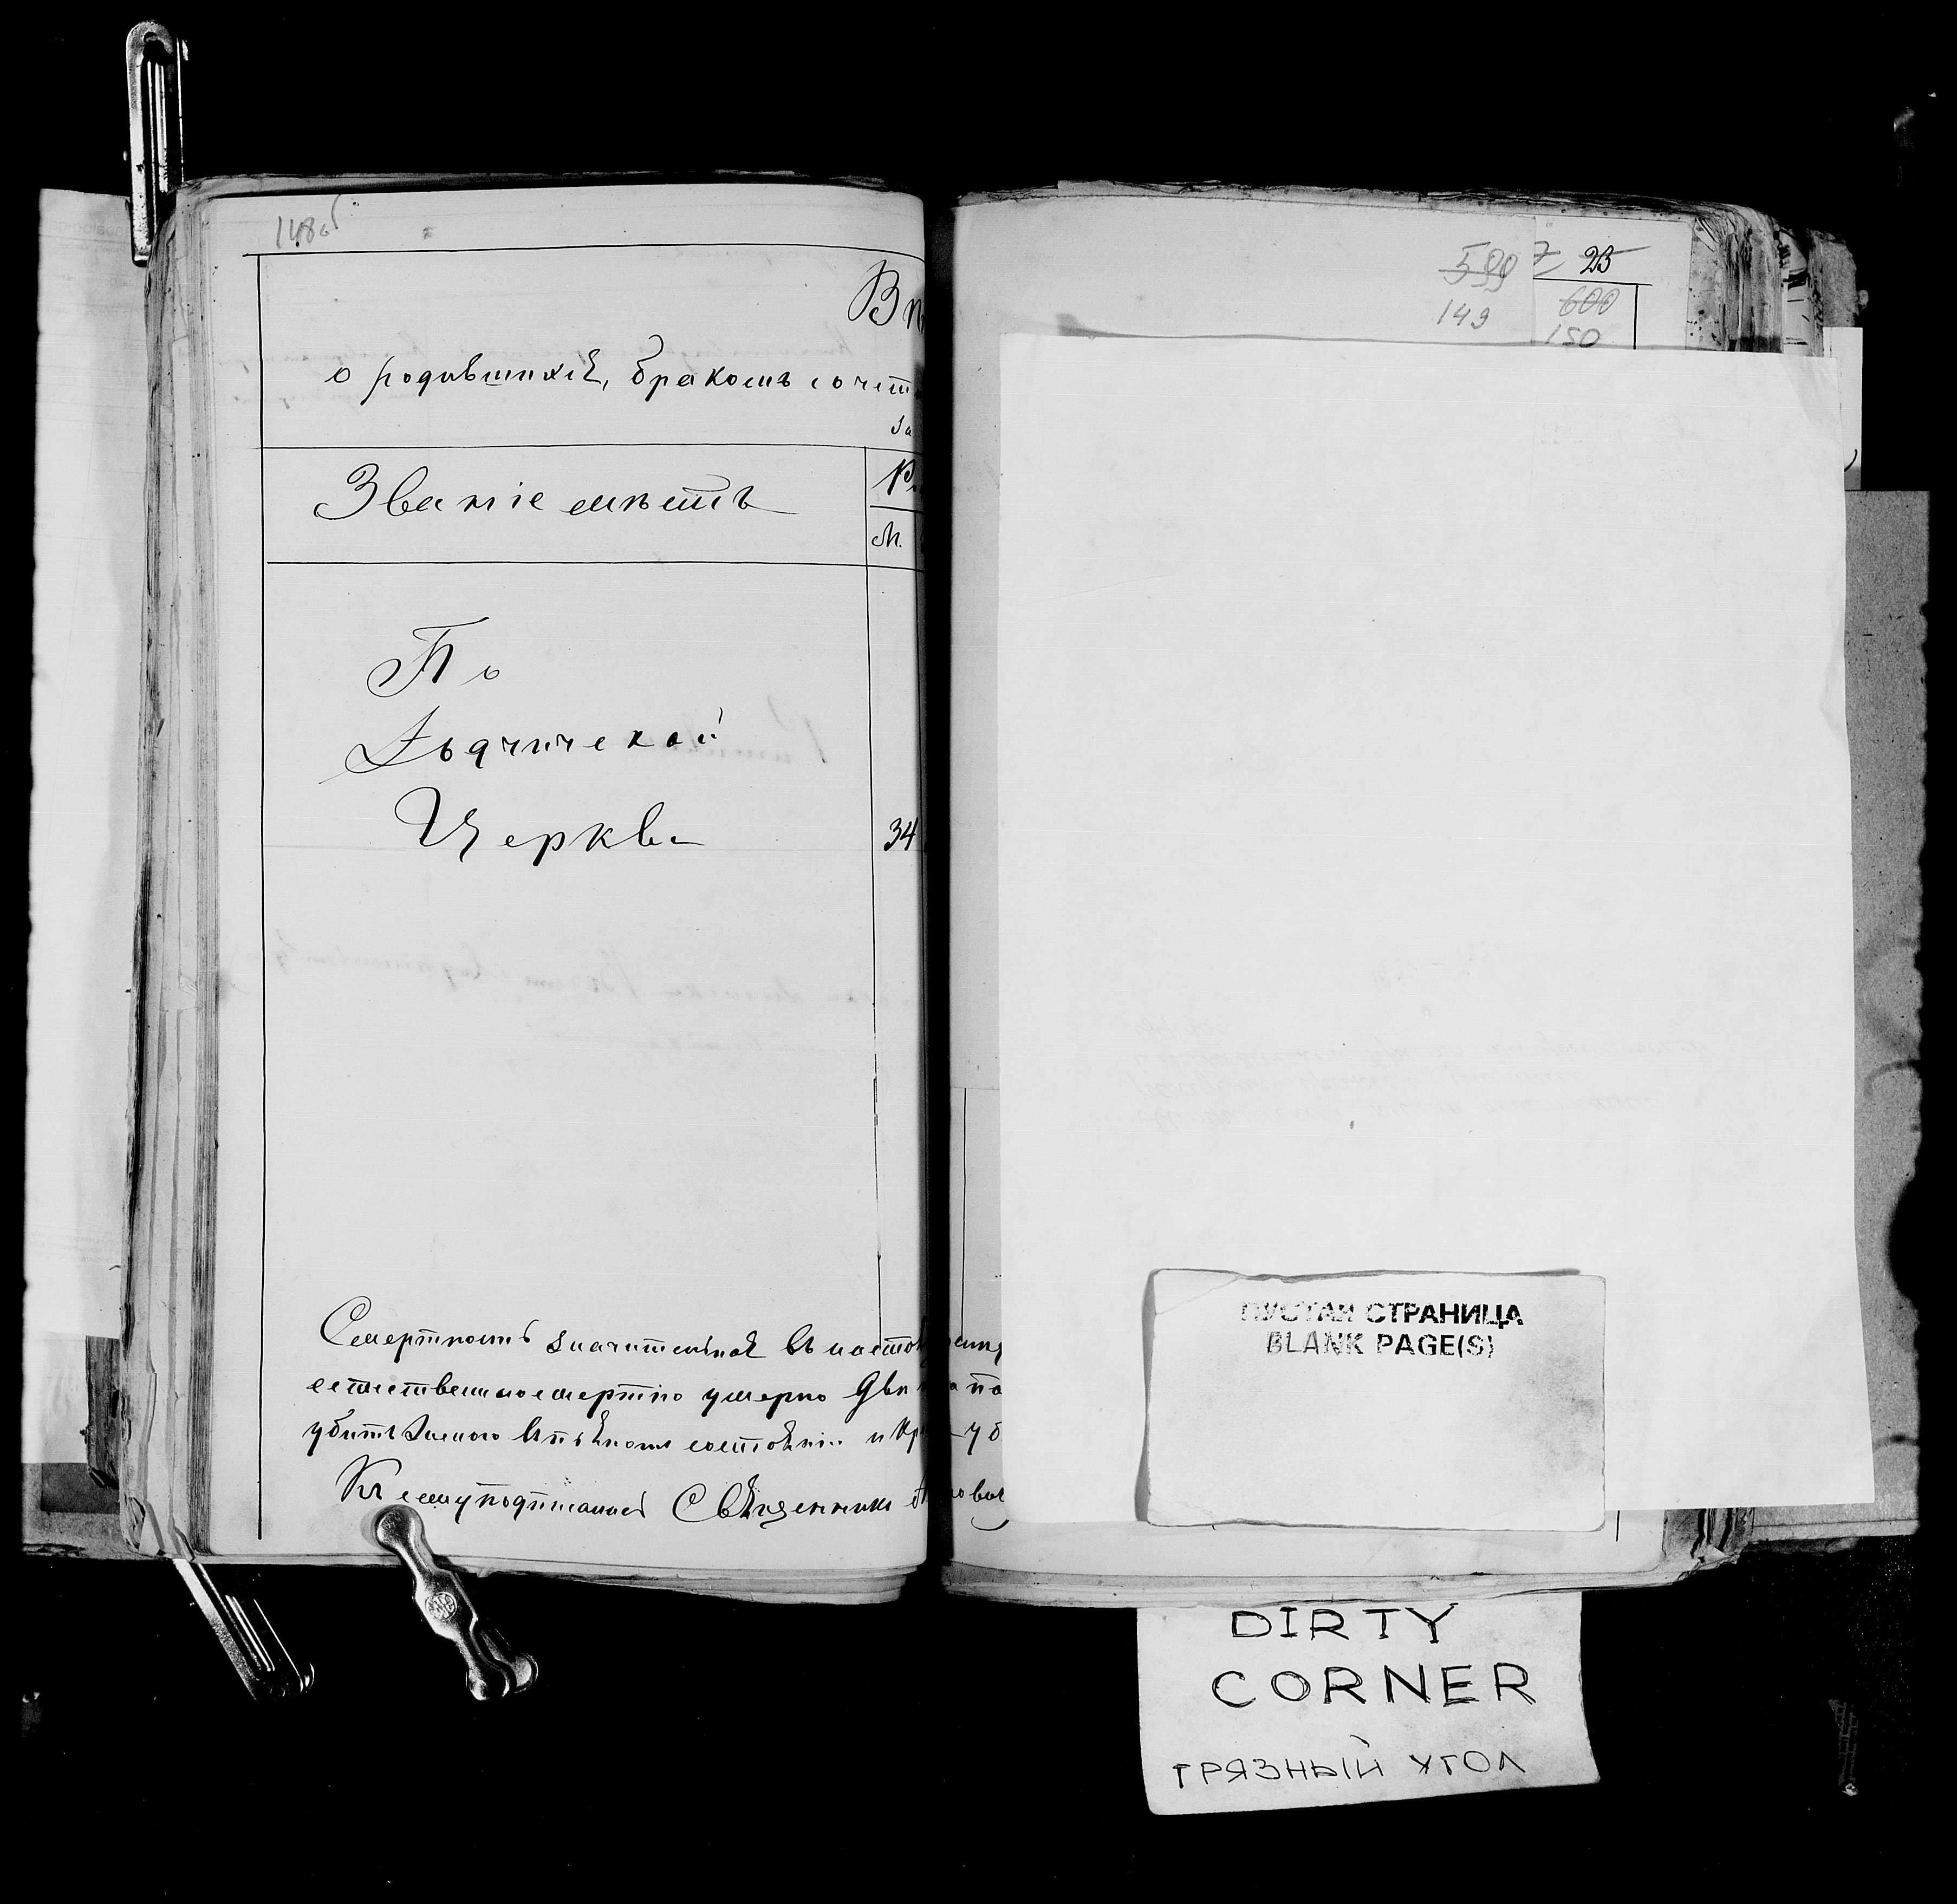 148об
В
о родившихся, бракомъ сочет
за
Званіе мѣстъ
Р
М.
По
Дьячической
Церкви
34
Смертность значительная въ
естественно смертію умерло
убитъ въ пьяномъ состояніи и
Къ сему подписался Священникъ
599
149
7 23
600
150
ПУСТАЯ СТРАНИЦА
BLANK PAGE(S)
DIRTY
CORNER
ГРЯЗНЫЙ УГОЛ